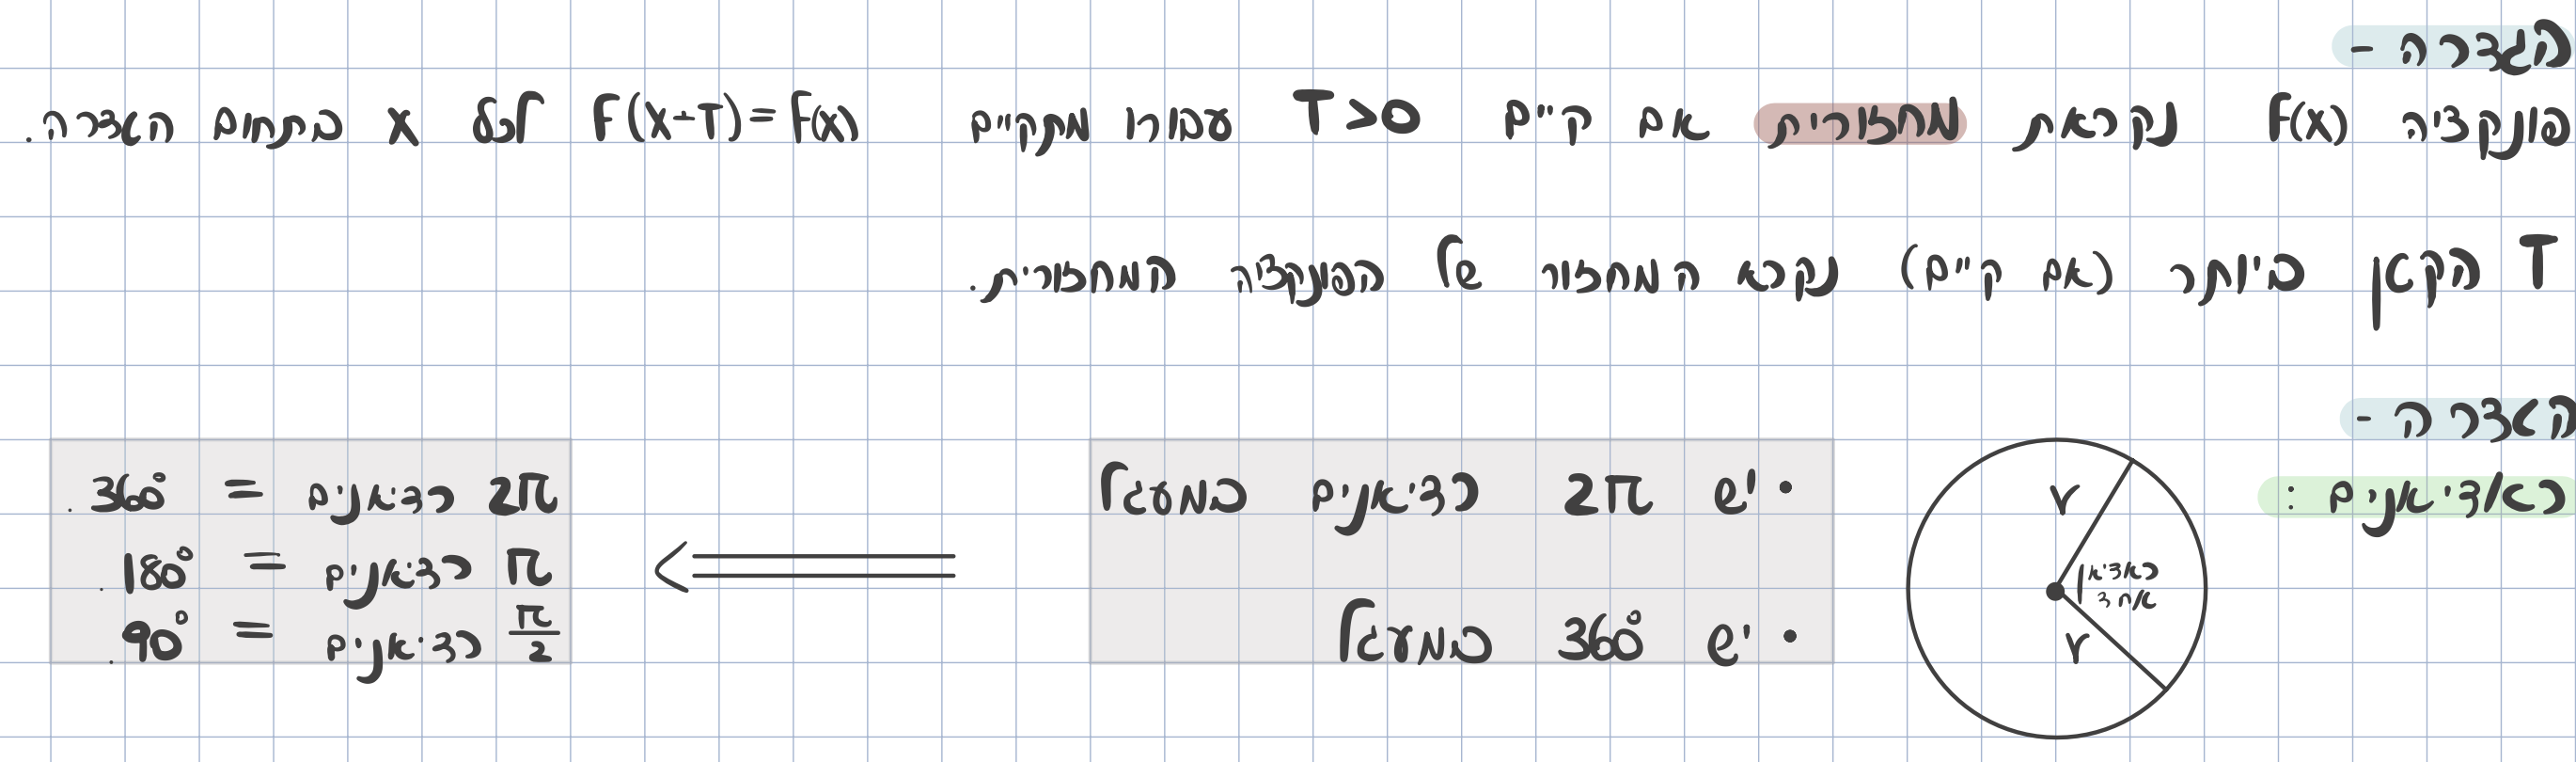 הגדרה -
פונקציה f(x) נקראת מחזורית אם קיים T>0 עבורו מתקיים f(x+T)=f(x) לכל x בתחום הגדרה.
T הקטן ביותר (אם קיים) נקרא המחזור של הפונקציה המחזורית.
הגדרה -
ראדיאנים :
r
ראדיאן
אחד
r
• יש 2π רדיאנים במעגל
• יש 360° במעגל
⟸
2π רדיאנים = 360° .
π רדיאנים = 180° .
π/2 רדיאנים = 90° .